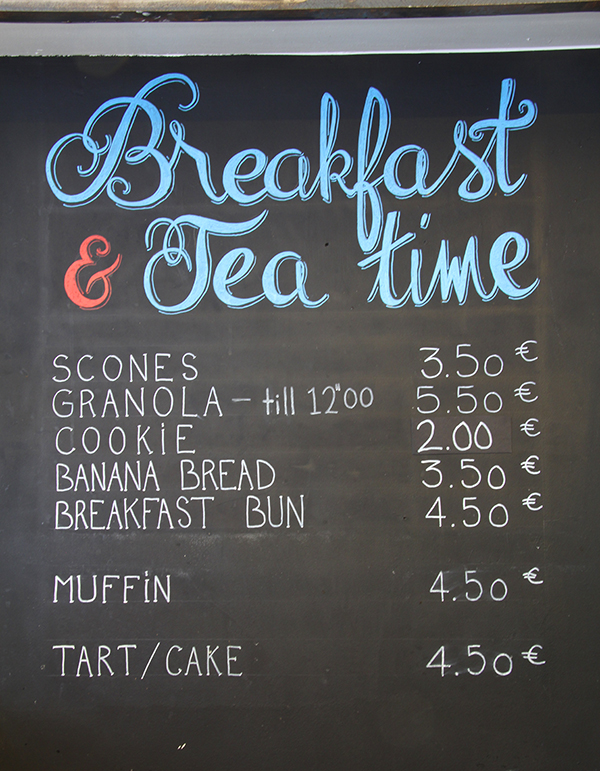 Breakfast
& Tea time
SCONES 3.50 €
GRANOLA - till 12"00 5.50 €
COOKiE 2.00 €
BANANA BREAD 3.50 €
BREAKFAST BUN 4.50 €
MUFFiN 4.50 €
TART/CAKE 4.50 €